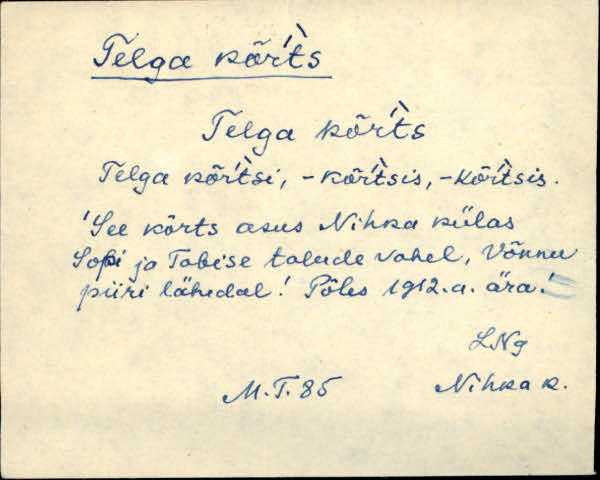 Telga kõr̀ts
Telga kõr̀ts
Telga kõr̀tsi, -kõr̀tsis, -kõr̀tsis.
'See kõrts asus Nihka külas
Sopi ja Tobise talude vahel, Võnnu
piiri lähedal! Põles 1912.a. ära.'
LNg
M.T. 85 Nihka k.